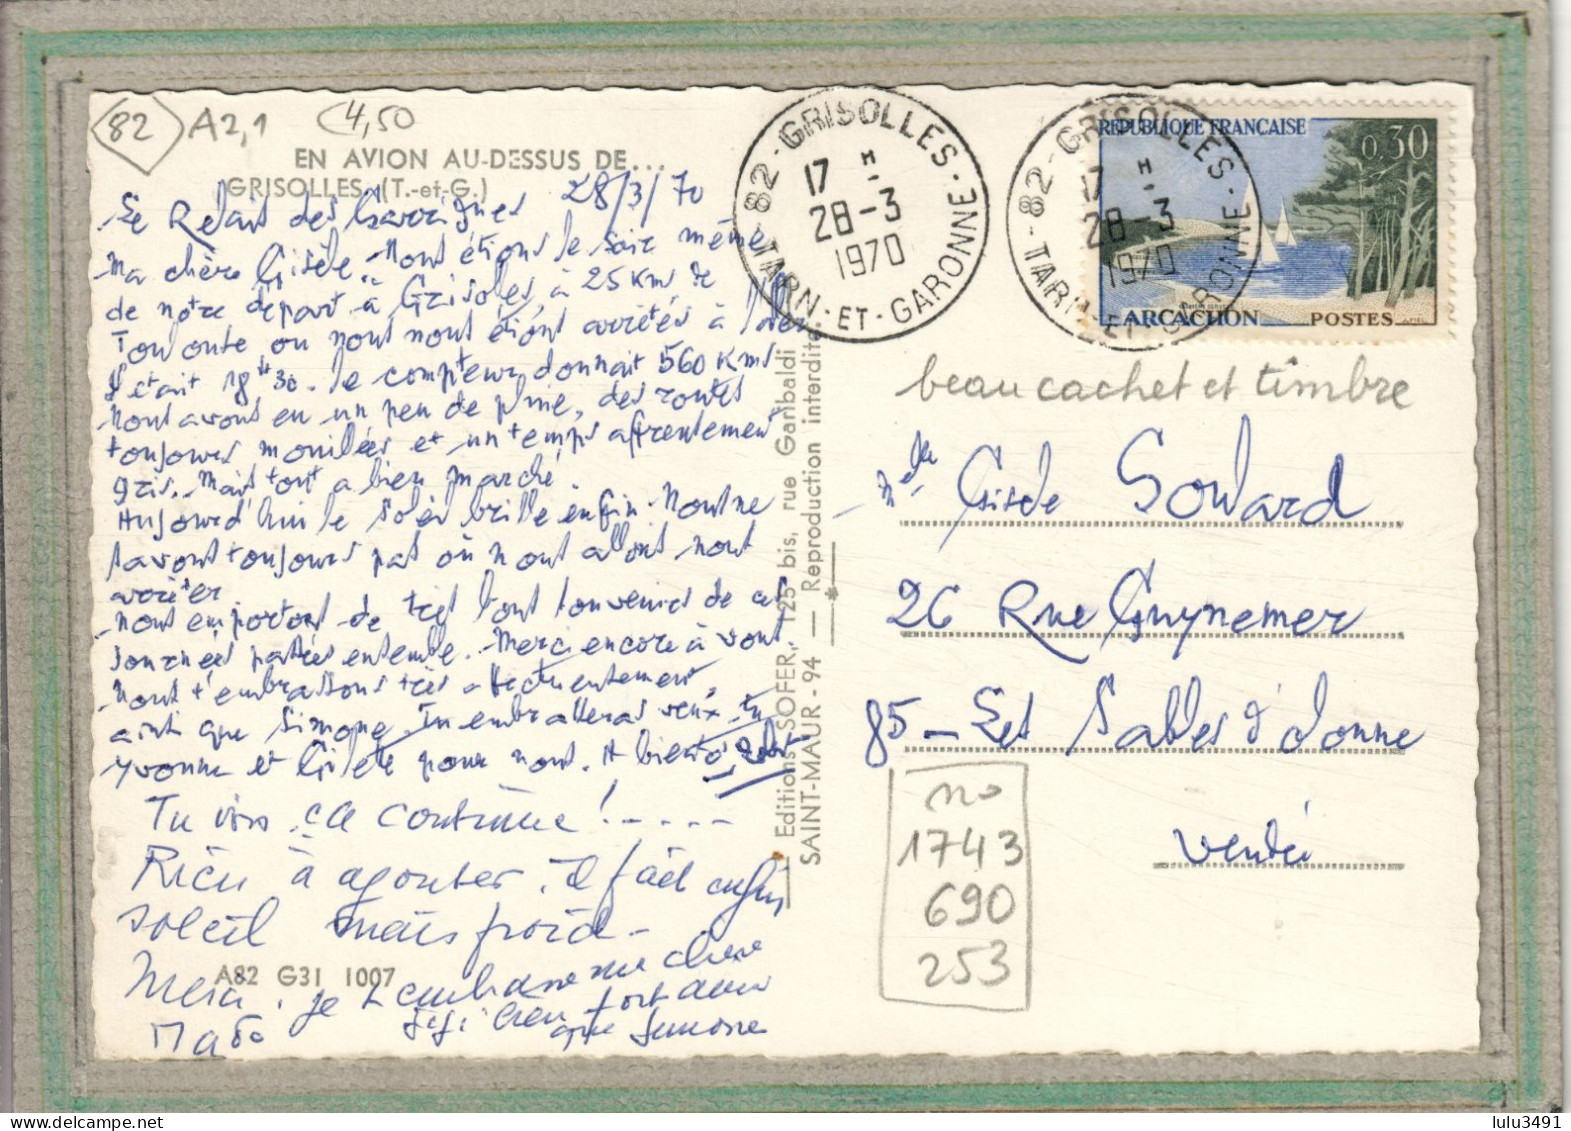 82 A2,1 4,50
EN AVION AU-DESSUS DE...
GRISOLLES (T.-et-G.)
Le Relais des Garrigues 28/3/70
Ma chère Gisèle. Nous étions le soir même
de notre départ à Grisoles, à 25 Kms de
Toulouse, ou nous nous étions arrêtés à l'Hôtel.
Il était 18H30. Le compteur donnait 560 Kms
Nous avons eu un peu de pluie, des routes
toujours mouillées et un temps affreusement
gris.. Mais tout a bien marché.
Aujourd'hui le soleil brille enfin. Nous ne
savons toujours pas où nous allons nous
arrêter.
Nous emportons de très bons souvenirs de ces
journées passées ensemble. Merci encore à vous.
Nous t'embrassons très affectueusement,
ainsi que Simone. Tu embrasseras
Yvonne et Gisèle pour nous. A bientôt,
Tu vois ça continue !-----
Rien à ajouter, il fait enfin
soleil mais froid -
Merci. je t'embrasse ma chère
gigi bien fort ainsi
Mado que Simone
A82 G31 1007
Editions SOFER, 125 bis, rue Garibaldi
SAINT-MAUR - 94 — Reproduction interdite
82 - GRISOLLES - TARN-ET-GARONNE
17 H
28-3
1970
82 - GRISOLLES - TARN-ET-GARONNE
17 H
28-3
1970
REPUBLIQUE FRANCAISE
0,30
ARCACHON POSTES
beau cachet et timbre
Melle Gisèle Soulard
26 Rue Guynemer
85 - Les Sables d'Olonne
Vendée
no
1743
690
253
lulu3491